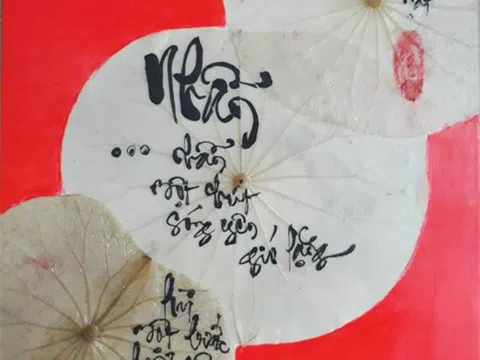 Nhẫn
... nhẫn
một chút
sóng yên
gió lặng
lùi
một bước